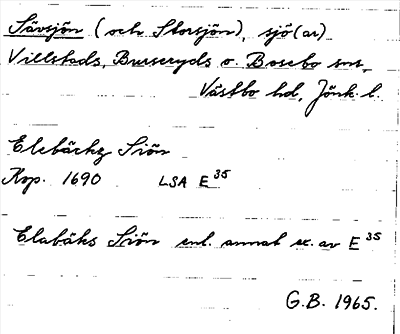 Sävsjön (och Storsjön), sjö(ar)
Villstads, Burseryds o. Bosebo snr,
Västbo hd, Jönk. l.
Elebäckz Siön
Kop. 1690 LSA E 35
Elabäks Siön enl. annat ex. av E 35
G.B. 1965.